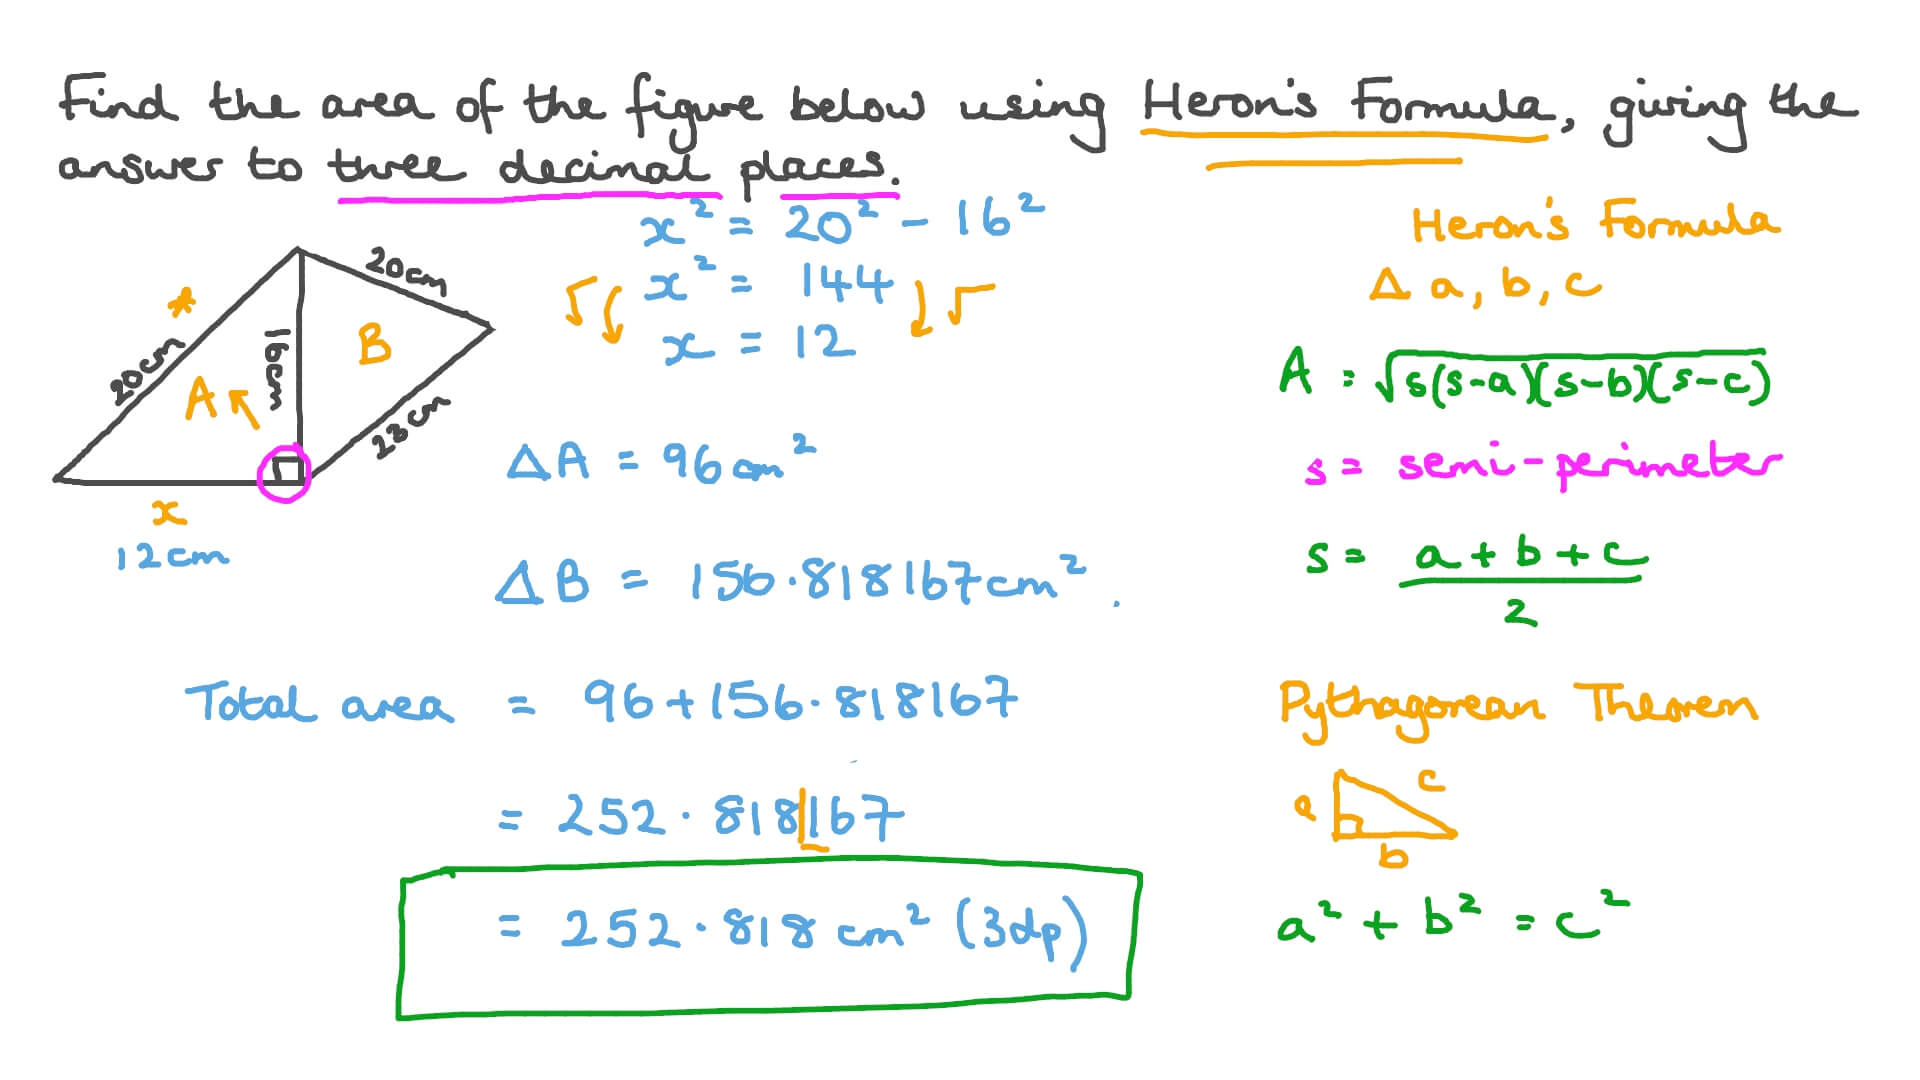 Find the area of the figure below using Heron's Formula, giving the
answer to three decimal places.
x² = 20² - 16²
x² = 144
x = 12
√
√
20cm
20cm
*
16cm
A
B
23cm
x
12cm
ΔA = 96cm²
ΔB = 156.818167cm².
Total area = 96+156.818167
= 252.818167
= 252.818 cm² (3dp)
Heron's Formula
Δ a, b, c
A = √s(s-a)(s-b)(s-c)
s = semi-perimeter
s = a + b + c
2
Pythagorean Theorem
a
c
b
a² + b² = c²